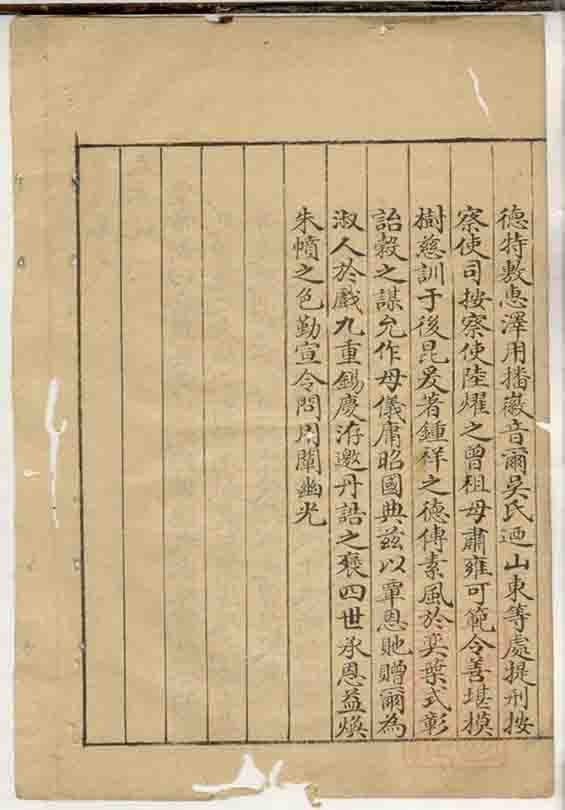 德特敷惠澤用播徽音爾吳氏迺山東等處提刑按
察使司按察使陸燿之曾祖母肅雍可範令善堪模
樹慈訓于後昆爰著鍾祥之德傳素風於奕葉式彰
詒穀之謀允作母儀庸昭國典茲以覃恩貤贈爾為
淑人於戲九重錫慶洊邀丹誥之褒四世承恩益煥
朱幩之色勤宣令問用闡幽光